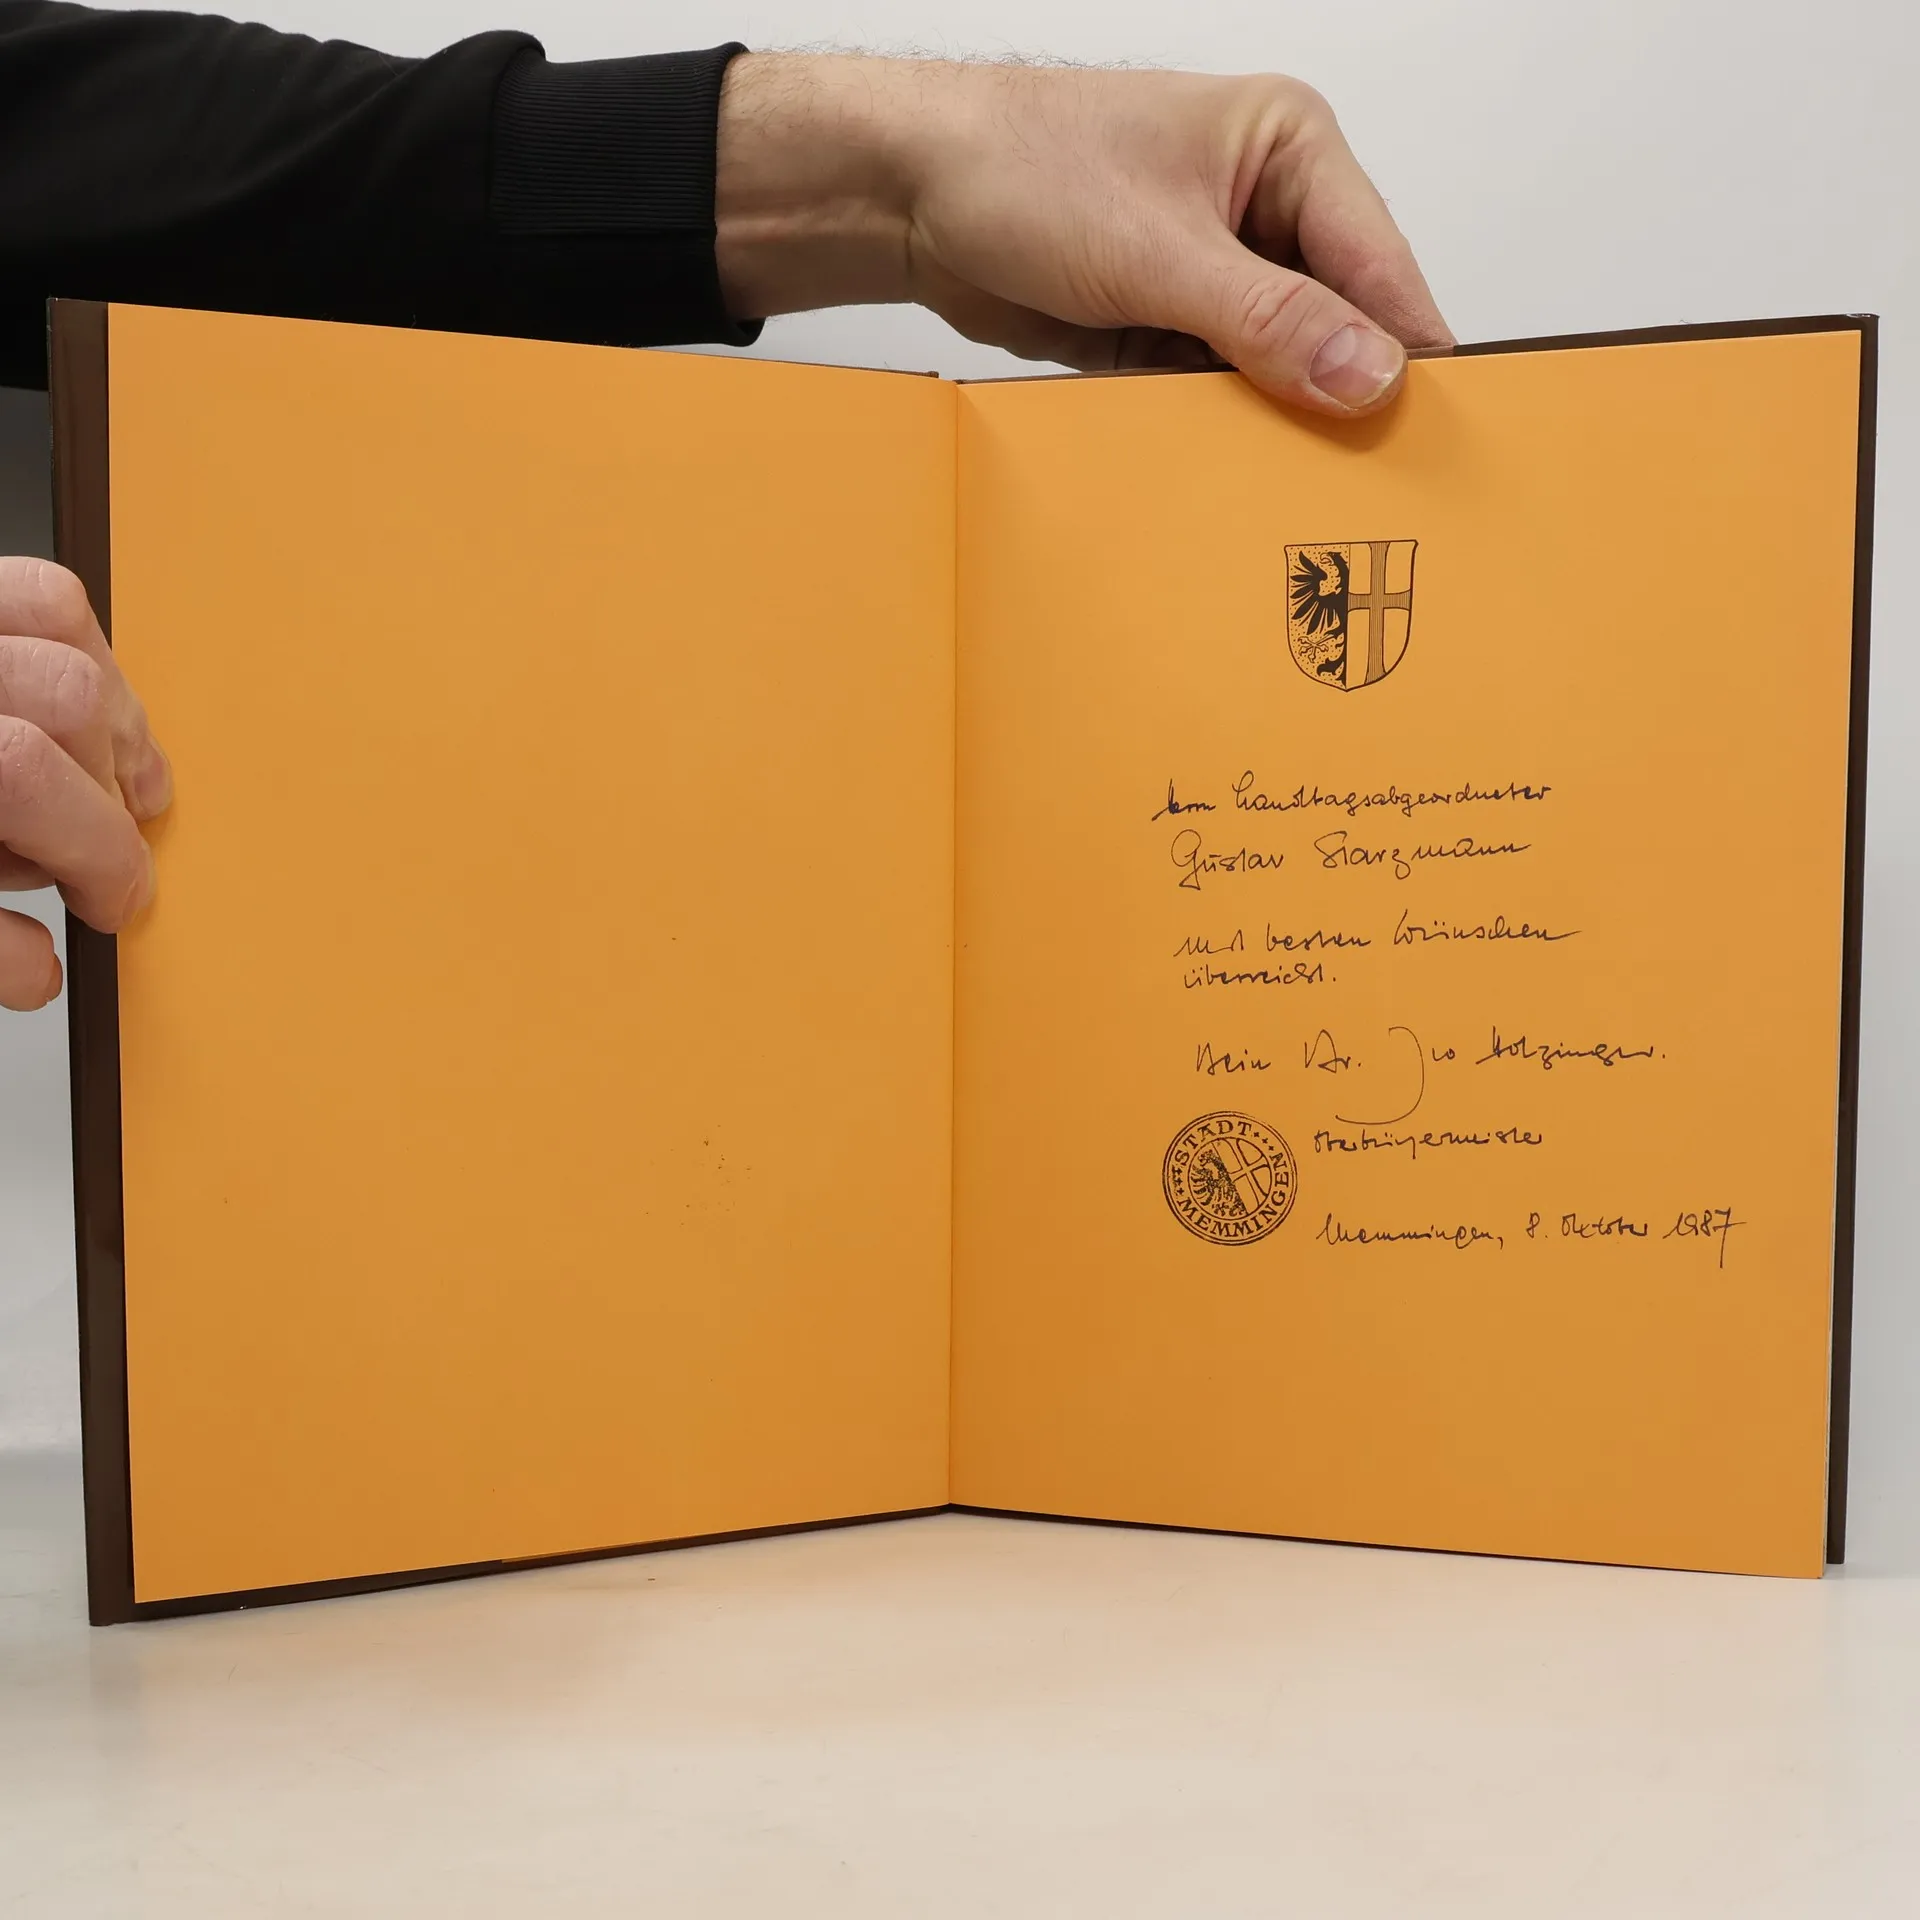 Herrn Landtagsabgeordneter
Gustav Starzmann
mit besten Wünschen
überreicht.
Dein Dr. Ivo Holzinger.
Oberbürgermeister
STADT
MEMMINGEN
Memmingen, 8. Oktober 1987